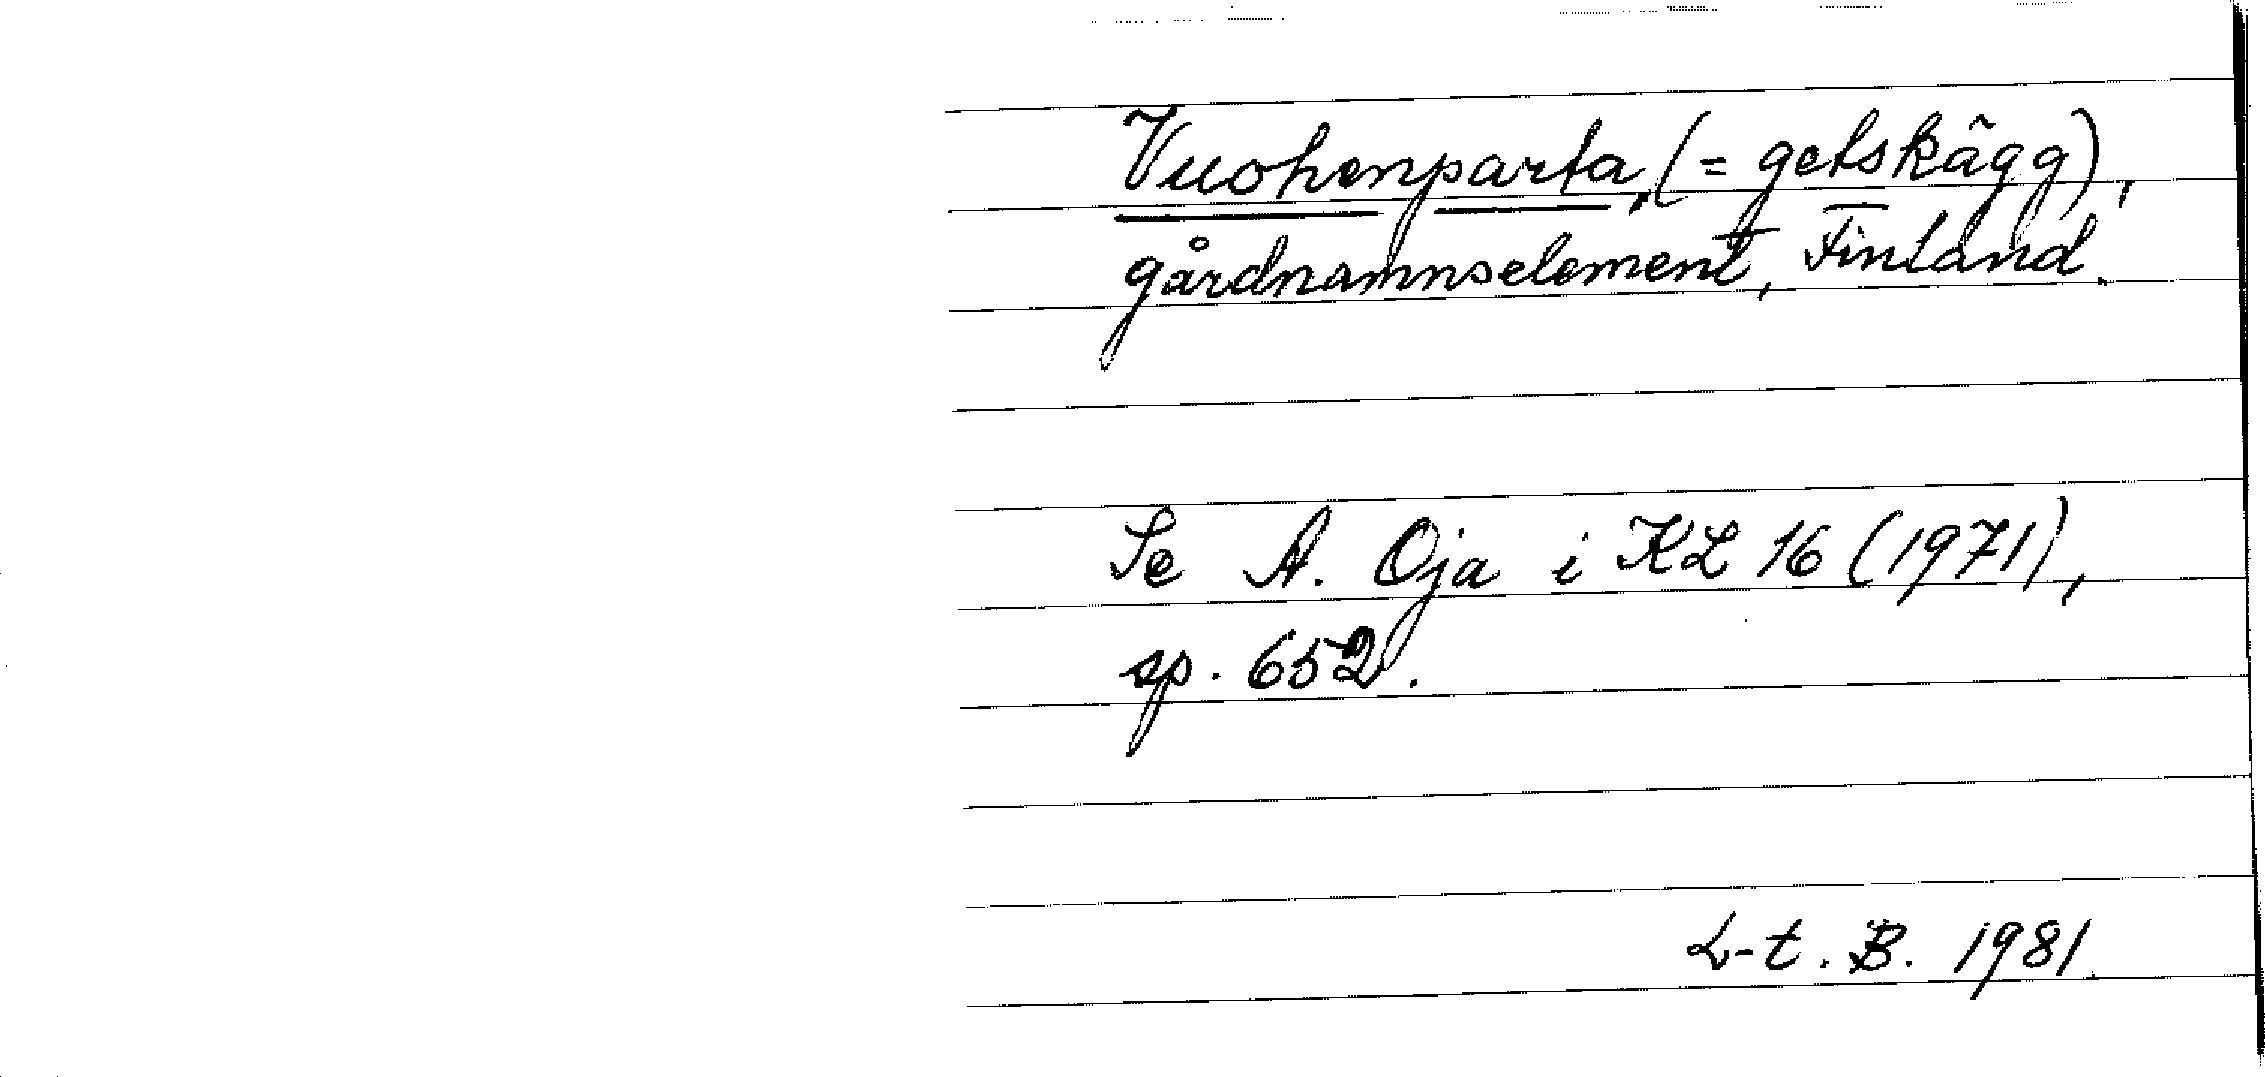 Vuohenparta, (= getskägg),
gårdnamnselement, Finland.
Se A. Oja i KL 16 (1971),
sp. 652.
L-t. B. 1981.